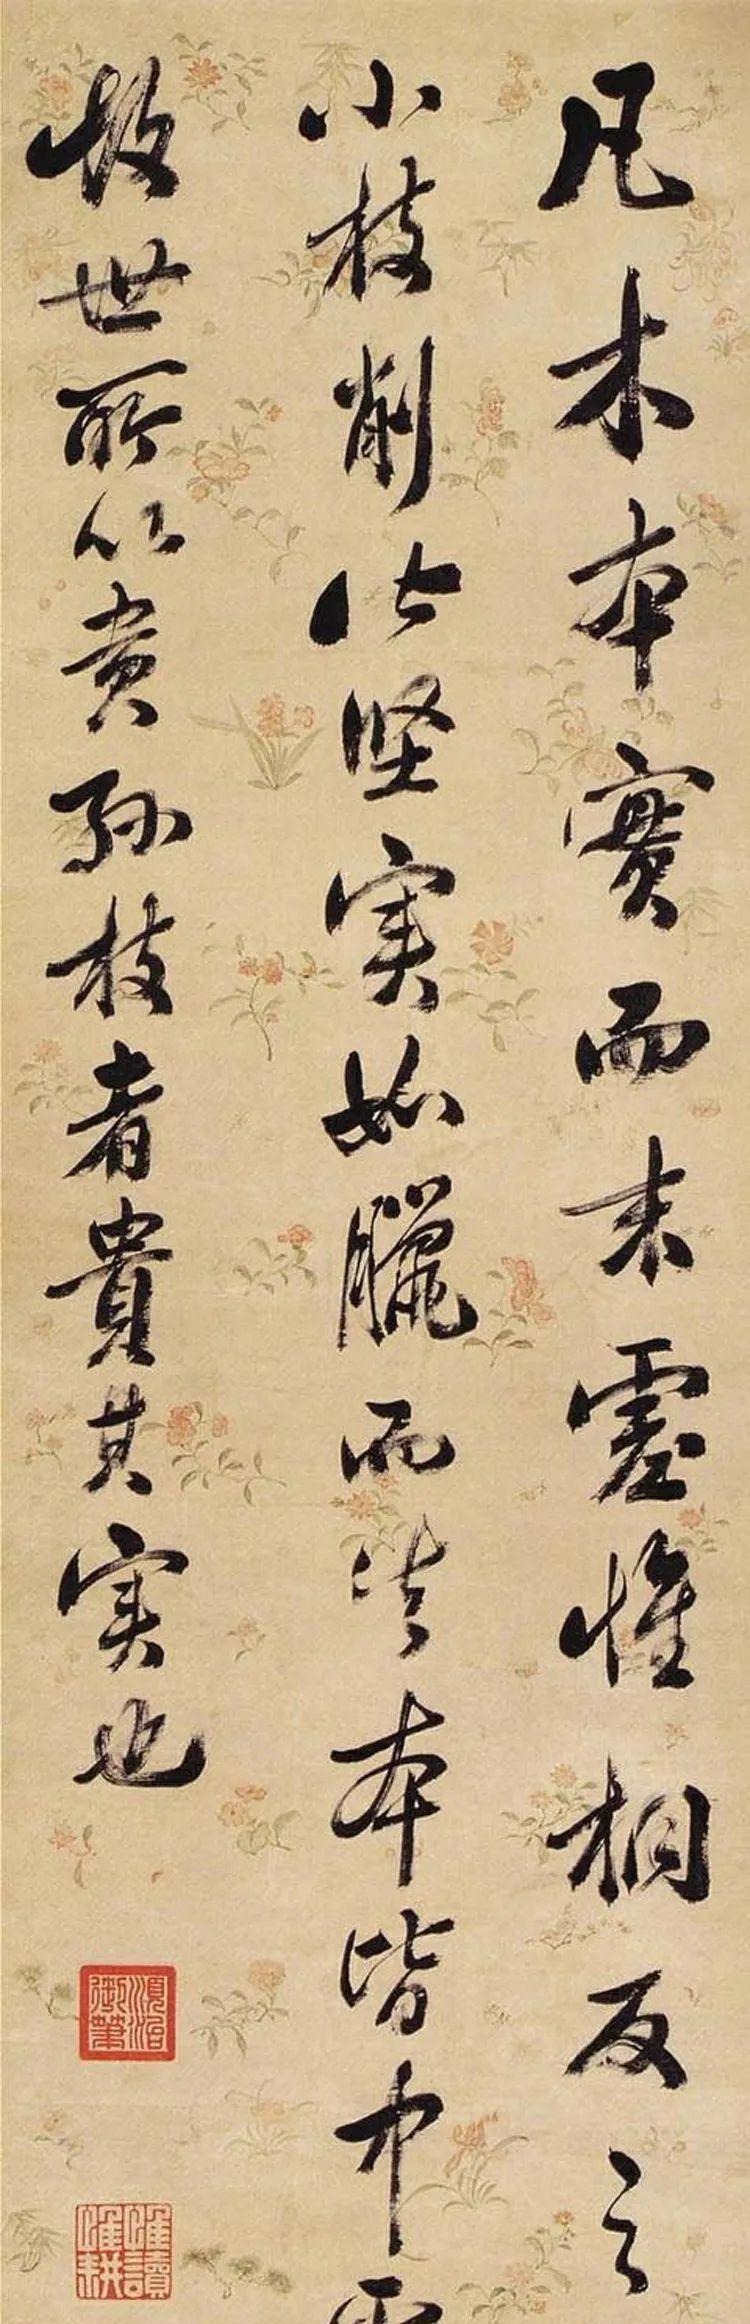 凡木本實而末虛惟桐反之
小枝削堅實如臘而其本皆中
故世所以貴孫枝者貴其實也
順治御筆